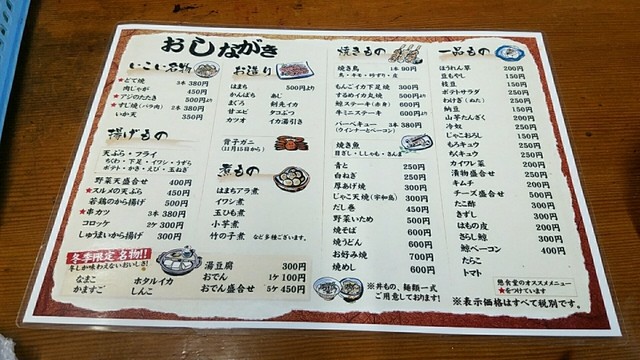 おしながき
いこい名物
★どて焼 3本 380円
肉じゃが 450円
★アジのたたき 500円より
★すじ(バラ肉) 3本 380円
いか天 350円
揚げもの
天ぷら・フライ
ちくわ・下足・イワシ・うずら
ポテト・かき・えび・玉ねぎ
野菜天盛合せ 400円
★スルメの天ぷら 450円
若鶏のから揚げ 500円
★串カツ 3本 380円
コロッケ 2ケ 300円
しゅうまいから揚げ 300円
お造り
はまち 500円より
かんぱち あじ
まぐろ 剣先イカ
甘エビ タコぶつ
カツオ イカ湯引き
背子ガニ
(11月15日から)
煮もの
はまちアラ煮
イワシ煮
玉ひも煮
小芋煮
竹の子煮 など多種ございます。
冬季限定 名物!!
冬しか味わえないおいしさ!
なまこ ホタルイカ
かますご しんこ
湯豆腐 300円
おでん 1ケ 100円
おでん盛合せ 5ケ 450円
焼きもの
焼き鳥 1本 90円
鳥・キモ・ずり・皮
もんごイカ下足焼 300円
するめイカ丸焼 500円より
鯨ステーキ(赤身) 600円
牛ミニステーキ 600円より
バーベキュー 3本 380円
(ウインナーとベーコン)
焼き魚
目ざし・ししゃも・さんま
青と 250円
白ねぎ 250円
厚あげ焼 300円
じゃこ天焼(宇和島) 300円
だし巻 450円
野菜いため 500円
焼そば 600円
焼うどん 600円
お好み焼 700円
焼めし 600円
※丼もの、麺類一式
ご用意しております!
一品もの
ほうれん草 200円
豆もやし 150円
枝豆 150円
ポテトサラダ 250円
わけぎ(ぬた) 250円
納豆 150円
山芋たんざく 200円
冷奴 250円
じゃこおろし 150円
もろキュウ 250円
ちくキュウ 250円
カイワレ菜 200円
漬物盛合せ 250円
キムチ 250円
チーズ盛合せ 500円
たこ酢 300円
きずし 300円
はもの皮 200円
さらし鯨 300円
鯨ベーコン 400円
たらこ
トマト
憩食堂のオススメメニュー
★をつけています
※表示価格はすべて税別です。